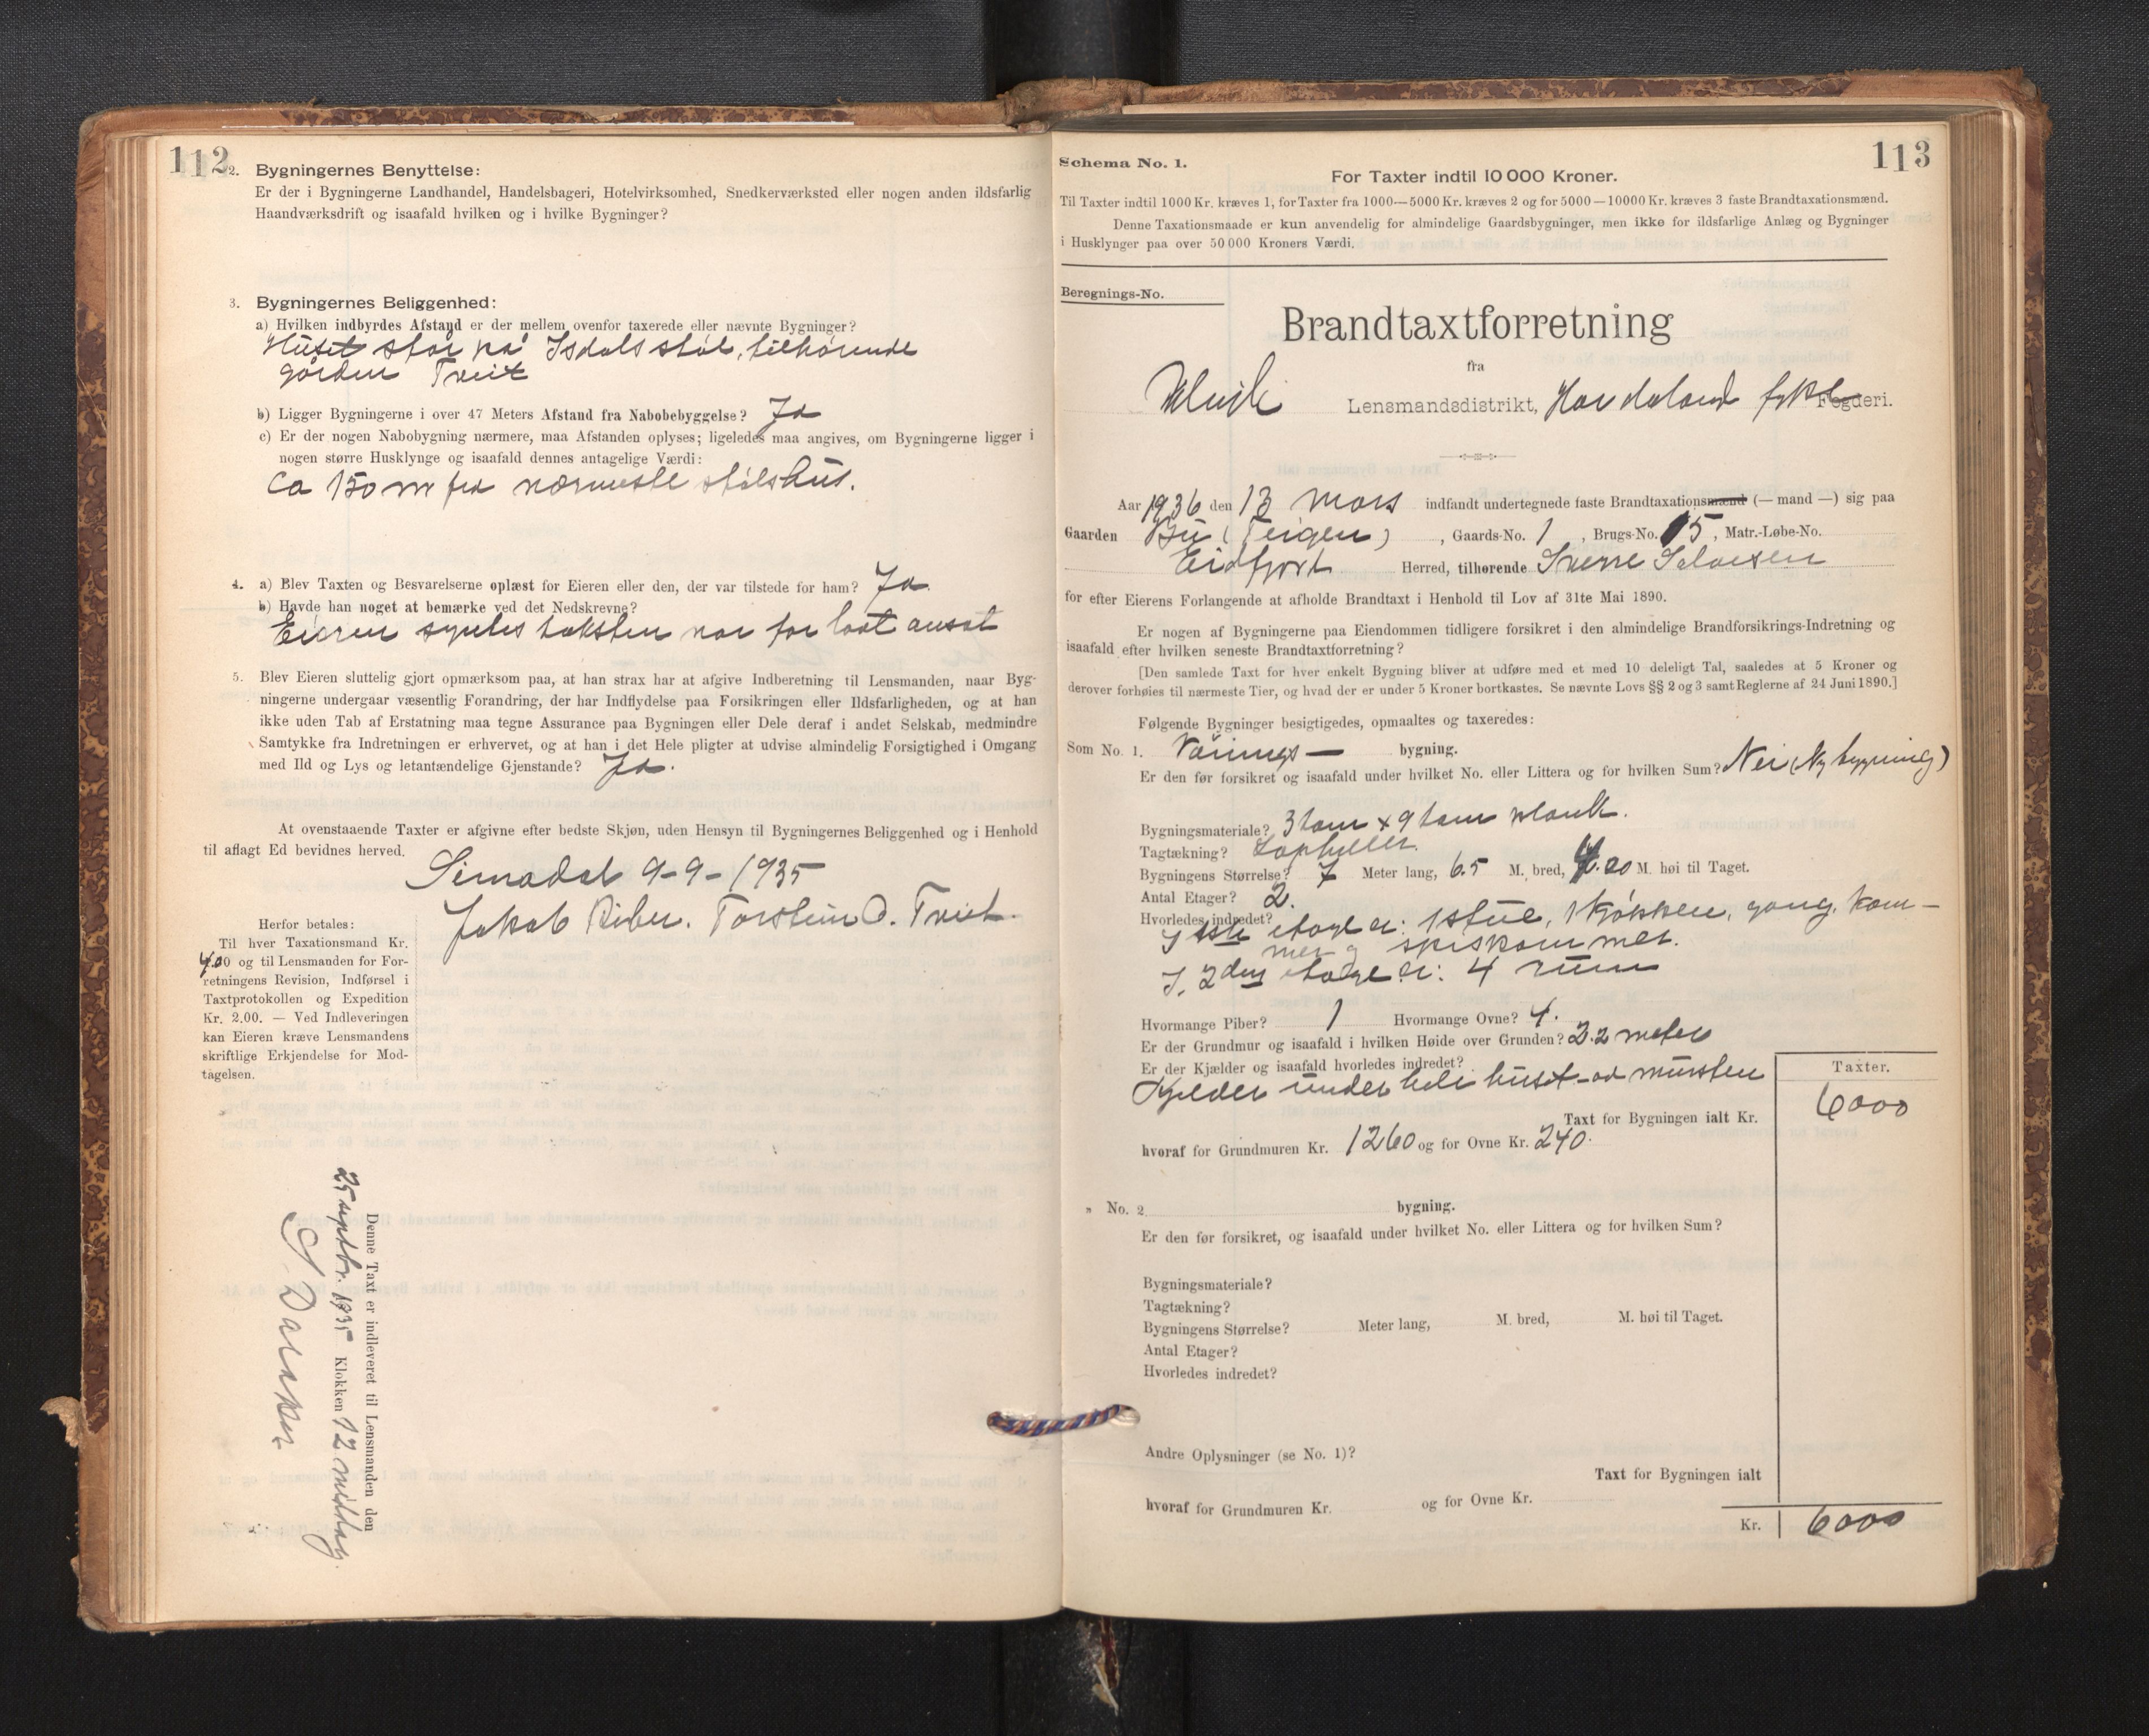 112
2. Bygningernes Benyttelse:
Er der i Bygningerne Landhandel, Handelsbageri, Hotelvirksomhed, Snedkerværksted eller nogen anden ildsfarlig
Haandværksdrift og isaafald hvilken og i hvilke Bygninger?
3. Bygningernes Beliggenhed:
a) Hvilken indbyrdes Afstand er der mellem ovenfor taxerede eller nævnte Bygninger?
Huset står på Isdalsstøl, tilhørende
gården Tveit
b) Ligger Bygningerne i over 47 Meters Afstand fra Nabobebyggelse? Ja
c) Er der nogen Nabobygning nærmere, maa Afstanden oplyses; ligeledes maa angives, om Bygningerne ligger i
nogen større Husklynge og isaafald dennes antagelige Værdi:
Ca 150 m fra nærmeste stølshus.
4. a) Blev Taxten og Besvarelserne oplæst for Eieren eller den, der var tilstede for ham? Ja.
b) Havde han noget at bemærke ved det Nedskrevne?
Eieren syntes taksten var for lavt ansat
5. Blev Eieren sluttelig gjort opmærksom paa, at han strax har at afgive Indberetning til Lensmanden, naar Byg-
ningerne undergaar væsentlig Forandring, der har Indflydelse paa Forsikringen eller Ildsfarligheden, og at han
ikke uden Tab af Erstatning maa tegne Assurance paa Bygningen eller Dele deraf i andet Selskab, medmindre
Samtykke fra Indretningen er erhvervet, og at han i det Hele pligter at udvise almindelig Forsigtighed i Omgang
med Ild og Lys og letantændelige Gjenstande? Ja.
At ovenstaaende Taxter er afgivne efter bedste Skjøn, uden Hensyn til Bygningernes Beliggenhed og i Henhold
til aflagt Ed bevidnes herved.
Simadal 9-9-1935
Jakob Riber. Torstein O. Tveit.
Herfor betales:
Til hver Taxationsmand Kr.
4.00 og til Lensmanden for For-
retningens Revision, Indførsel i
Taxtprotokollen og Expedition
Kr. 2.00. — Ved Indleveringen
kan Eieren kræve Lensmandens
skriftlige Erkjendelse for Mod-
tagelsen.
Denne Taxt er indleveret til Lensmanden den
25 septbr. 1935 Klokken 12 middag.
113
Schema No. 1.
For Taxter indtil 10 000 Kroner.
Til Taxter indtil 1000 Kr. kræves 1, for Taxter fra 1000—5000 Kr. kræves 2 og for 5000—10000 Kr. kræves 3 faste Brandtaxationsmænd.
Denne Taxationsmaade er kun anvendelig for almindelige Gaardsbygninger, men ikke for ildsfarlige Anlæg og Bygninger
i Husklynger paa over 50 000 Kroners Værdi.
Beregnings-No.
Brandtaxtforretning
fra
Ulvik Lensmandsdistrikt, Hordaland fylke Fogderi.
Aar 1936 den 13 mars indfandt undertegnede faste Brandtaxationsmænd (— mand —) sig paa
Gaarden Bu (Teigen), Gaards-No. 1, Brugs-No. 15, Matr.-Løbe-No.
Eidfjord Herred, tilhørende Sverre Salvesen
for efter Eierens Forlangende at afholde Brandtaxt i Henhold til Lov af 31te Mai 1890.
Er nogen af Bygningerne paa Eiendommen tidligere forsikret i den almindelige Brandforsikrings-Indretning og
isaafald efter hvilken seneste Brandtaxtforretning?
[Den samlede Taxt for hver enkelt Bygning bliver at udføre med et med 10 deleligt Tal, saaledes at 5 Kroner og
derover forhøies til nærmeste Tier, og hvad der er under 5 Kroner bortkastes. Se nævnte Lovs §§ 2 og 3 samt Reglerne af 24 Juni 1890.]
Følgende Bygninger besigtigedes, opmaaltes og taxeredes:
Som No. 1. Vånings— bygning.
Er den før forsikret og isaafald under hvilket No. eller Littera og for hvilken Sum? Nei (Ny bygning)
Bygningsmateriale? 3 tom x 9 tom plank.
Tagtækning?
Bygningens Størrelse? 7 Meter lang, 6.5 M. bred, 4.20 M. høi til Taget.
Antal Etager? 2.
Hvorledes indredet?
I 1ste etage er: 1 stue, 1 kjøkken, gang, kam-
mer og spiskammer.
I. 2den etage er: 4 rum
Hvormange Piber? 1 Hvormange Ovne? 4.
Er der Grundmur og isaafald i hvilken Høide over Grunden? 2.2 meter
Er der Kjælder og isaafald hvorledes indredet?
Kjelder under hele huset – av mursten
Taxter.
Taxt for Bygningen ialt Kr. 6000
hvoraf for Grundmuren Kr. 1260 og for Ovne Kr. 240.
" No. 2 bygning.
Er den før forsikret, og isaafald under hvilket No. eller Littera og for hvilken Sum?
Bygningsmateriale?
Tagtækning?
Bygningens Størrelse? Meter lang, M. bred, M. høi til Taget.
Antal Etager?
Hvorledes indredet?
Andre Oplysninger (se No. 1)?
Taxt for Bygningen ialt
hvoraf for Grundmuren Kr. og for Ovne Kr.
Kr. 6000